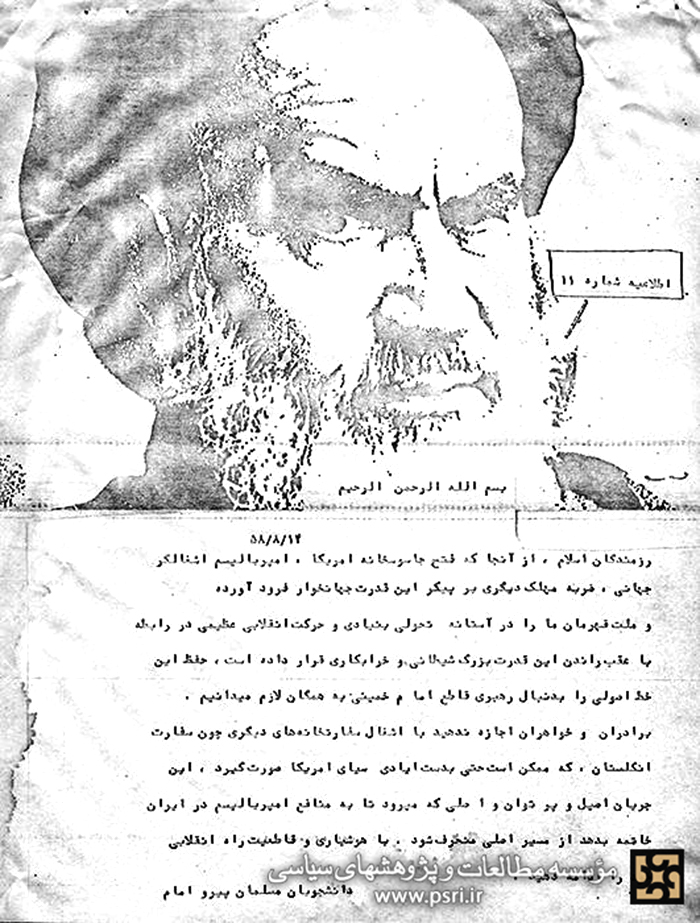 اطلاعیه شماره ۱۱
بسم الله الرحمن الرحیم
۵۸/۸/۱۴
رزمندگان اسلام ، از آنجا که فتح جاسوسخانه امریکا ، امپریالیسم اشغالگر
جهانی ، ضربه مهلک دیگری بر پیکر این قدرت جهانخوار فرود آورده
و ملت قهرمان ما را در آستانه تحولی بنیادی و حرکت انقلابی عظیمی در رابطه
با عقب راندن این قدرت بزرگ شیطانی و خرابکاری قرار داده است ، حفظ این
خط اصولی را بدنبال رهبری قاطع امام خمینی به همگان لازم میدانیم .
برادران و خواهران اجازه ندهید با اشغال سفارتخانه‌های دیگری چون سفارت
انگلستان ، که ممکن است حتی بدست ایادی سیای امریکا صورت گیرد ، این
جریان اصیل و پر توان و اصلی که میرود تا به منافع امپریالیسم در ایران
خاتمه بدهد از مسیر اصلی منحرف شود . با هوشیاری و قاطعیت راه انقلابی
را
دانشجویان مسلمان پیرو امام
مؤسسه مطالعات و پژوهشهای سیاسی
www.psri.ir